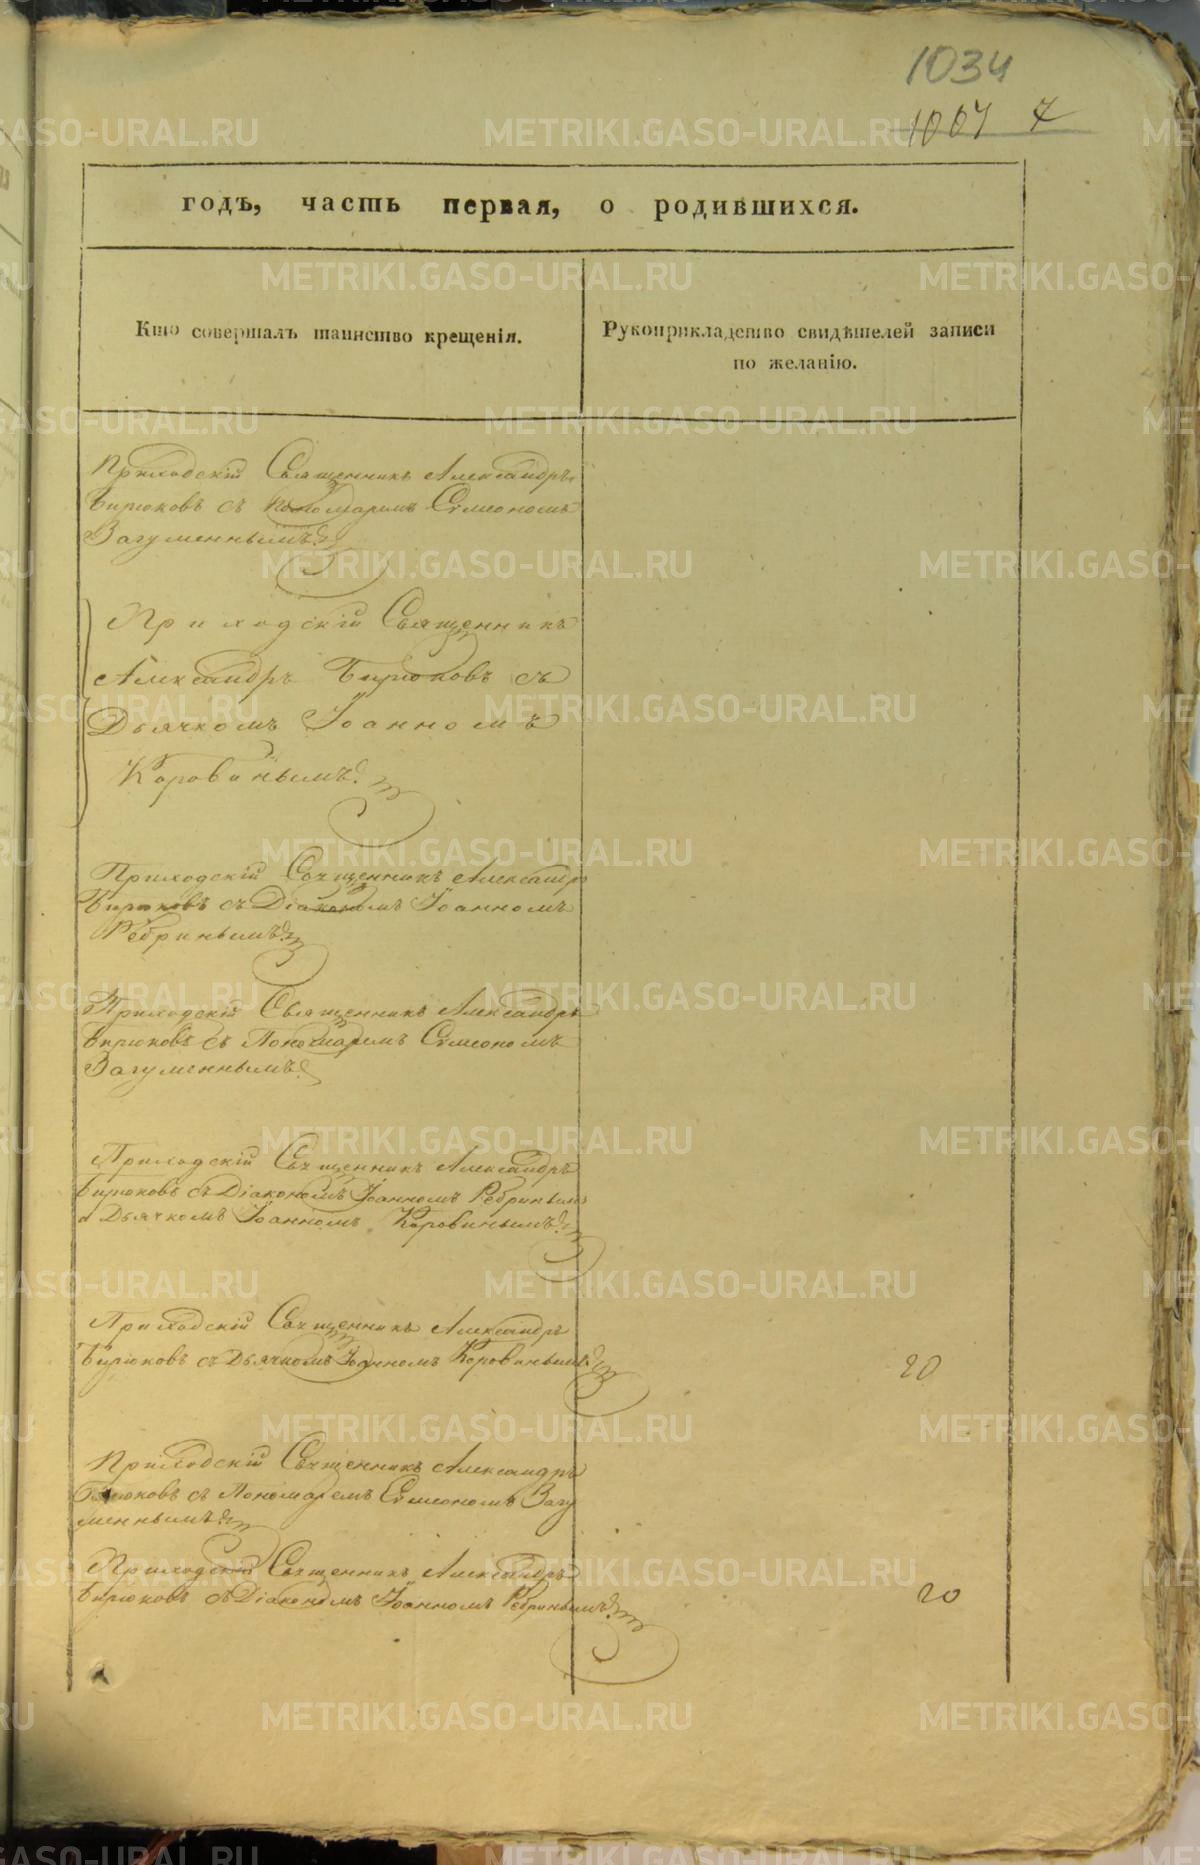 1034
1007 7
годъ, часть первая, о родившихся.
Кто совершалъ таинство крещенія.
Рукоприкладство свидѣтелей записи
по желанію.
Приходскій Священникъ Александръ
Бирюковъ съ Пономаремъ Симеономъ
Загуменнымъ
Приходскій Священникъ
Александръ Бирюковъ съ
Дьячкомъ Іоанномъ
Коровинымъ.
Приходскій Священникъ Александръ
Бирюковъ съ Діакономъ Іоанномъ
Ребринымъ
Приходскій Священникъ Александръ
Бирюковъ съ Пономаремъ Симеономъ
Загуменнымъ
Приходскій Священникъ Александръ
Бирюковъ съ Діакономъ Іоанномъ Ребринымъ
и Дьячкомъ Іоанномъ Коровинымъ
Приходскій Священникъ Александръ
Бирюковъ съ Дьячкомъ Іоанномъ Коровинымъ
20
Приходскій Священникъ Александръ
Бирюковъ съ Пономаремъ Симеономъ Загу
меннымъ
Приходскій Священникъ Александръ
Бирюковъ съ Діакономъ Іоанномъ Ребринымъ
20
METRIKI.GASO-URAL.RU